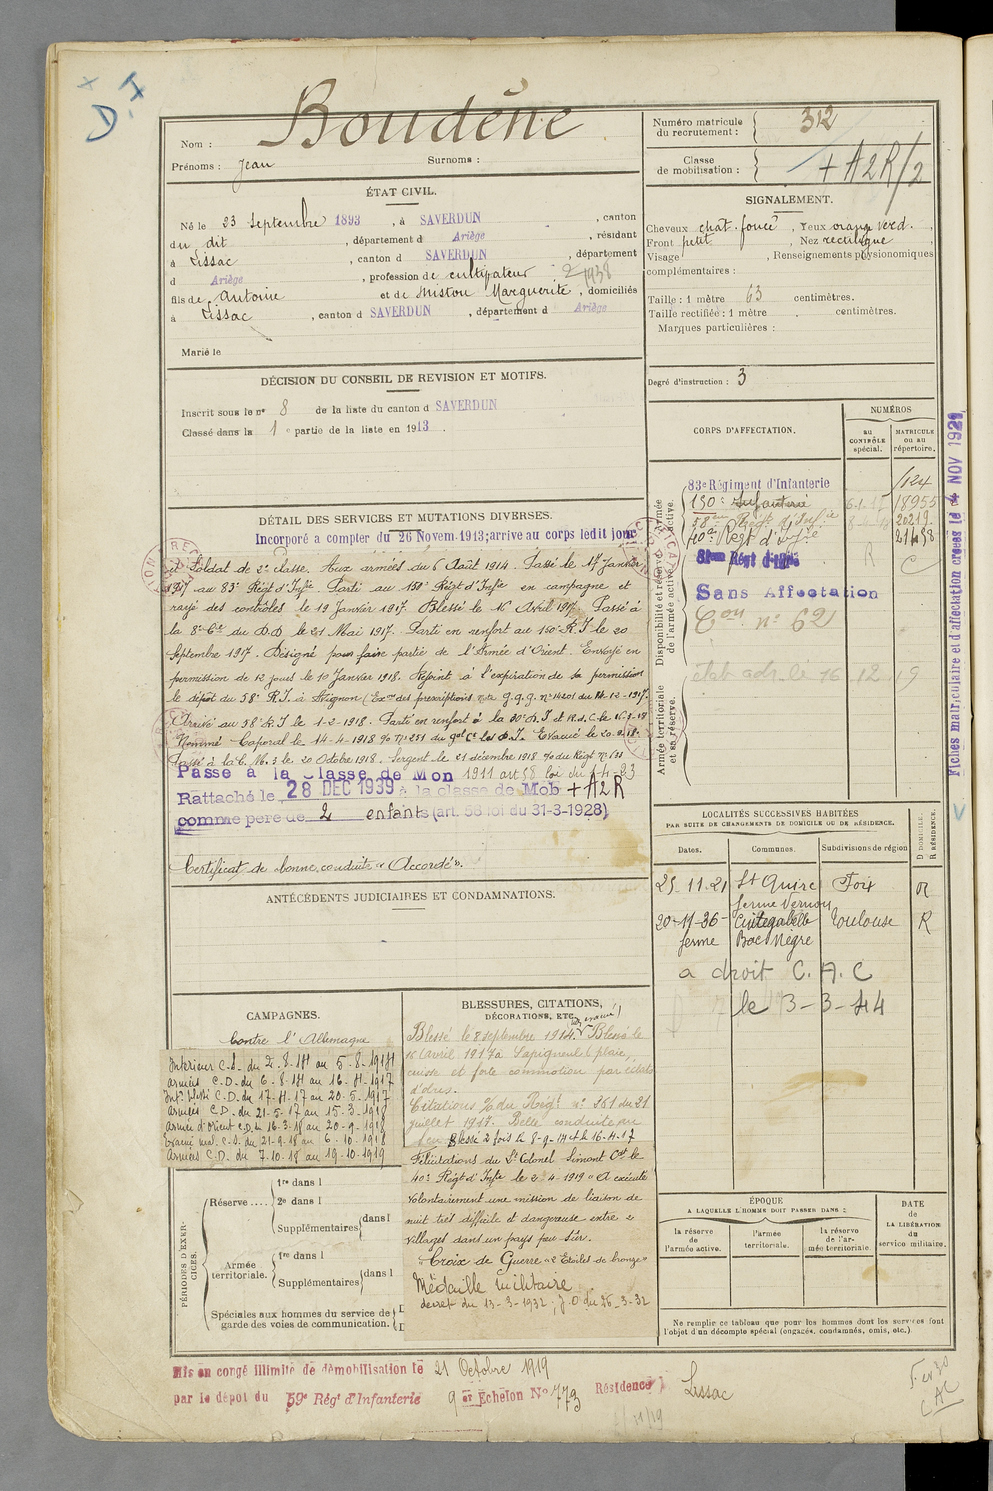 D.I
Nom : Boudène
Prénoms : Jean Surnoms :
Numéro matricule du recrutement : 312
Classe de mobilisation : + A2R/2
ÉTAT CIVIL.
Né le 23 septembre 1893, à SAVERDUN, canton
du dit, département d Ariège, résidant
à Lissac, canton d SAVERDUN, département
d Ariège, profession de cultivateur
1938
fils de Antoine et de Mistou Marguerite, domiciliés
à Lissac, canton d SAVERDUN, département d Ariège
Marié le
SIGNALEMENT.
Cheveux chât. foncé, Yeux orange verd.
Front petit, Nez rectiligne
Visage, Renseignements physionomiques
complémentaires :
Taille : 1 mètre 63 centimètres.
Taille rectifiée : 1 mètre . centimètres.
Marques particulières :
Degré d'instruction : 3
DÉCISION DU CONSEIL DE REVISION ET MOTIFS.
Inscrit sous le nº 8 de la liste du canton d SAVERDUN
Classé dans la 1e partie de la liste en 1913.
CORPS D'AFFECTATION.
NUMÉROS
au contrôle spécial.
MATRICULE ou au répertoire.
Disponibilité et réserve de l'armée active.
Armée territoriale et sa réserve.
83e Régiment d'Infanterie
1124
150e Infanterie 18955
58ème Régt d'Infie 20219
40e Régt d'Infie 21498
81ème Régt d'Infie R C
Sans Affectation
Con nº 62
état adr. le 16 12 19
Fiches matriculaire et d'affectation créées le 4 NOV 1921
DÉTAIL DES SERVICES ET MUTATIONS DIVERSES.
Incorporé a compter du 26 Novem. 1913; arrive au corps ledit jour
et Soldat de 2e classe. Aux armées du 6 Août 1914. Passé le 17 Janvier
1917 au 83e Régt d'Infie. Parti au 158e Régt d'Infie en campagne et
rayé des contrôles le 19 Janvier 1917. Blessé le 16 Avril 1917. Passé à
la 8e Cie du D.D le 21 Mai 1917. Parti en renfort au 150e R.I le 20
Septembre 1917. Désigné pour faire partie de l'Armée d'Orient. Envoyé en
permission de 12 jours le 10 Janvier 1918. Rejoint à l'expiration de sa permission
le dépôt du 58e R.I. à Avignon (Exon des prescriptions note G.Q.G. nº 14201 du 14-12-1917.
Arrivé au 58e R.I le 1-2-1918. Parti en renfort à la 30e D.I et R.d.C. le 16-3-18
Nommé Caporal le 14-4-1918 nº 251 du D.I. Evacué le 20-9-18.
Passé à la C.M.3 le 20 Octobre 1918. Sergent le 21 décembre 1918 % du Régt
Passé à la Classe de Mon 1911 art 58 loi du 1-4-23
Rattaché le 28 DEC 1939 à la classe de Mob + A2R
comme père de 2 enfants (art. 58 loi du 31-3-1928)
Certificat de bonne conduite « Accordé ».
ANTÉCÉDENTS JUDICIAIRES ET CONDAMNATIONS.
LOCALITÉS SUCCESSIVES HABITÉES
PAR SUITE DE CHANGEMENTS DE DOMICILE OU DE RÉSIDENCE.
Dates. Communes. Subdivisions de région
D DOMICILE.
R RÉSIDENCE.
25.11.21 St Quirc Foix R
ferme Vernou
20-11-36- Cintegabelle Toulouse R
ferme Bac Nègre
a droit C.A.C
le 3-3-44
CAMPAGNES.
Contre l'Allemagne
Intérieur C.S. du 2.8.14 au 5-8-1914
Armées C.D. du 6-8-14 au 16-4-1917
Intr blessé C.D. du 17-4-17 au 20-5-1917
Armées C.D. du 21-5-17 au 15-3-1918
Armée d'Orient C.D. du 16-3-18 au 20-9-1918
Evacué mal. C.S. du 21-9-18 au 6-10-1918
Armées C.D. du 7-10-18 au 19-10-1919
BLESSURES, CITATIONS, DÉCORATIONS, ETC.
Blessé le 8 septembre 1914. Blessé le
16 avril 1917 à Sapigneul (plaie
cuisse et forte commotion par éclats
d'obus.
Citations % du Régt nº 351 du 21
juillet 1917. Belle conduite au
feu. Blessé 2 fois le 8-9-14 et le 16-4-17
Félicitations du Lt Colonel Simont Ct le
40e Régt d'Infie le 2-4-1919 « A exécuté
volontairement une mission de liaison de
nuit très difficile et dangereuse entre 2
villages dans un pays peu sûr.
"Croix de Guerre « 2 Etoiles de bronze »
Médaille Militaire
décret du 13-3-1932, J.O du 26-3-32
PÉRIODES D'EXERCICES.
Réserve....
1re dans l
2e dans l
Supplémentaires dans l
Armée territoriale.
1re dans l
Supplémentaires dans l
Spéciales aux hommes du service de
garde des voies de communication.
ÉPOQUE
A LAQUELLE L'HOMME DOIT PASSER DANS :
la réserve de l'armée active.
l'armée territoriale.
la réserve de l'armée territoriale
DATE de LA LIBÉRATION du service militaire.
Ne remplir ce tableau que pour les hommes dont les services font
l'objet d'un décompte spécial (engagés, condamnés, omis, etc.).
Mis en congé illimité de démobilisation le 21 Octobre 1919
par le dépôt du 59e Régt d'Infanterie 9er Échelon Nº 773 Résidence Lissac
CAC